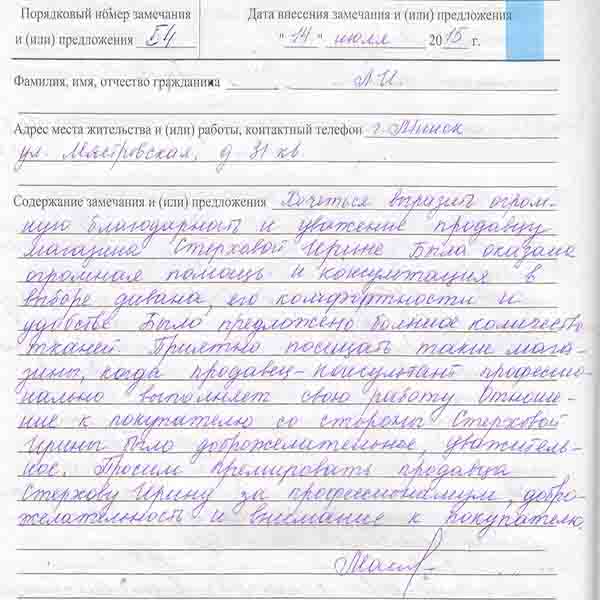 Порядковый номер замечания
и (или) предложения 54
Дата внесения замечания и (или) предложения
"14" июля 2015 г.
Фамилия, имя, отчество гражданина Л.И.
Адрес места жительства и (или) работы, контактный телефон г.
ул. Мястровская, д 31 кв
Содержание замечания и (или) предложения Хочеться выразить огром-
ную благодарность и уважение продавцу
магазина Стерховой Ирине Была оказана
огромная помощь и консультация в
выборе дивана, его комфортности и
удобстве Было предложено большое количество
тканей. Приятно посещать такие мага-
зины, когда продавец-консультант професси-
нально выполняет свою работу Отноше-
ние к покупателю со стороны Стерховой
Ирины было доброжелательное, уважитель-
ное. Просим премировать продавца
Стерхову Ирину за профессионализм, добро-
желательность и внимание к покупателю.